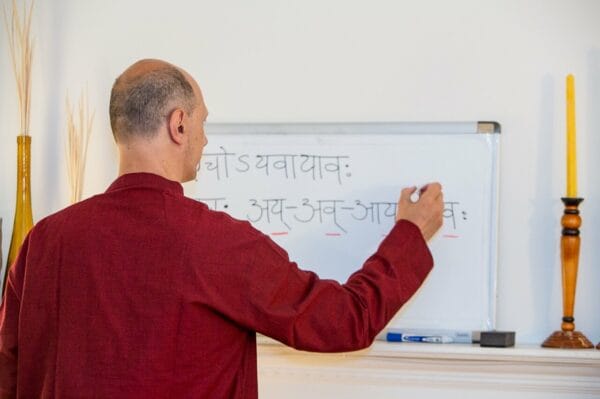 चोऽयवायावः
अय्-अव्-आय